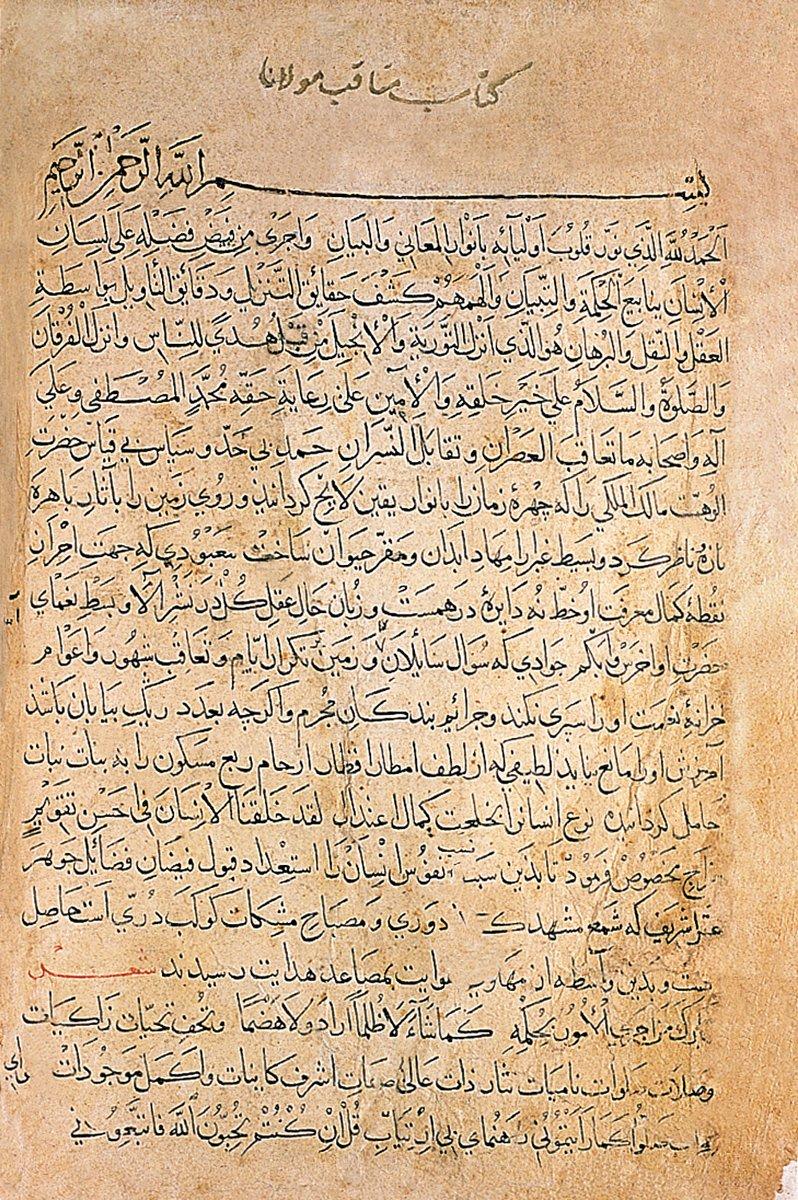 كتاب مناقب مولانا
بسم الله الرحمن الرحيم
الحمد لله الذي نور قلوب أوليائه بأنوار المعاني والبيان وأجرى من فيض فضله على لسان
الإنسان ينابيع الحكمة والتبيان وألهمهم كشف حقائق التنزيل ودقائق التأويل بواسطة
العقل والنقل والبرهان هو الذي أنزل التورية والإنجيل من قبل هدى للناس وأنزل الفرقان
والصلوة والسلام على خير خلقه والأمين على رعاية حقه محمد المصطفى وعلى
آله وأصحابه ما تعاقب العصران وتقابل النسران حمد بی حد و سپاس بی قیاس حضرت
الوهت مالک الملکی را که چهرهٔ زمان را بانوار یقین لایح گردانیذ و روی زمین را بآثار باهره
تازه و ناظر کرد و بسیط غبرا را مهاد ابدان و مقر حیوان ساخت معبودی که جهت احران
نقطهٔ کمال معرفت او خط نه دایره در همست و زبان حال عقل کل در نشر آلا و بسط نعمای
حضرت او اخرس و ابکم جوادی که سؤال سایلان و زمین بتکرار ایام و تعاقب شهور و اعوام
خزانهٔ نعمت او را سپری نکند و جرایم بندکان مجرم و اگرچه بعدد ریک بیابان باشذ
آمرزش او را مانع نیایذ لطیفی که از لطف امطار اقطار ارحام ربع مسکون را به بنات نبات
حامل کردانیذ نوع انسانرا بخلعت کمال اعتدال لقد خلقنا الإنسان في أحسن تقويم
مخصوص فرموذ تا بذین سبب نسب نفوس انسان را استعداد قبول فیضان فضائل جوهر
شریف که شمع مشهد دوری و مصباح مشکات کوکب دری است حاصل
و بدین واسطه از مهاوی بمصاعد هدایت رسیدند شعر
من أجرى الأمور بحكمه كما شاء لا ظلما أراد ولا هضما و تحف تحیات زاکیات
وصلات صلوات نامیات نثار ذات عالی صفات اشرف کاینات و اکمل موجودات
صلوا كما رأيتموني رهنمای بی ارتیاب قل إن كنتم تحبون الله فاتبعوني
رای